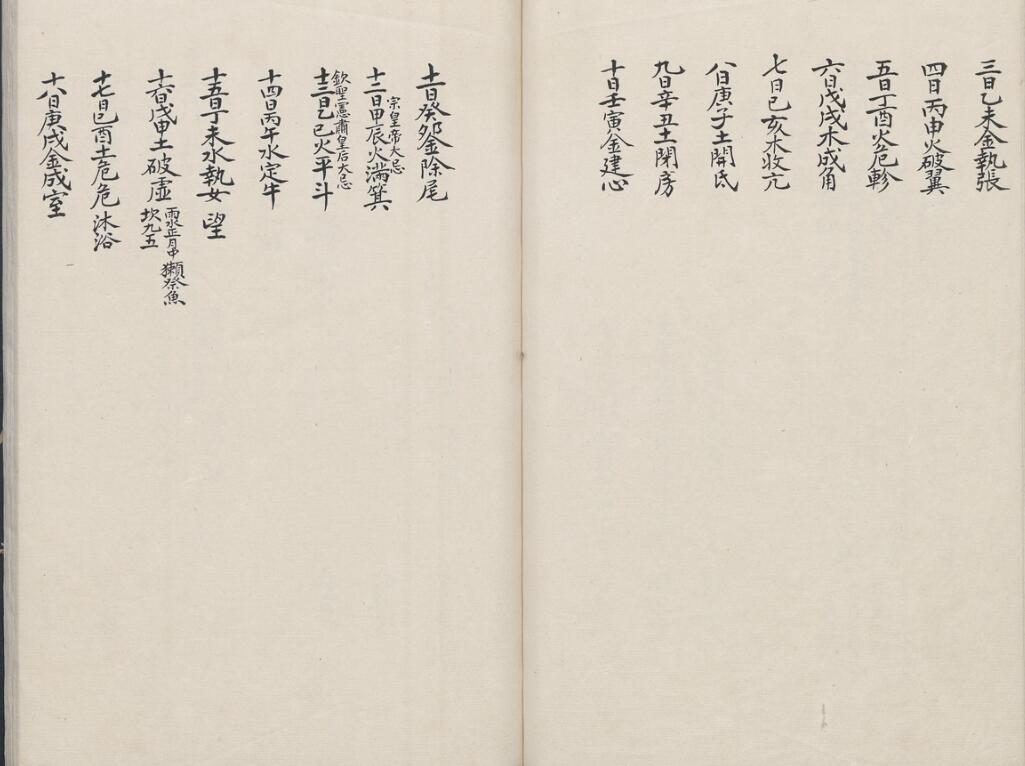 三日乙未金執張
四日丙申火破翼
五日丁酉火危軫
六日戊戌木成角
七日己亥木收亢
八日庚子土開氐
九日辛丑土閉房
十日壬寅金建心
十一日癸卯金除尾
十二日甲辰火滿箕
宗皇帝大忌
十三日乙巳火平斗
欽聖憲肅皇后大忌
十四日丙午水定牛
十五日丁未水執女 望
十六日戊申土破虛
雨水正月中 獺祭魚
坎九五
十七日己酉土危危 沐浴
十八日庚戌金成室